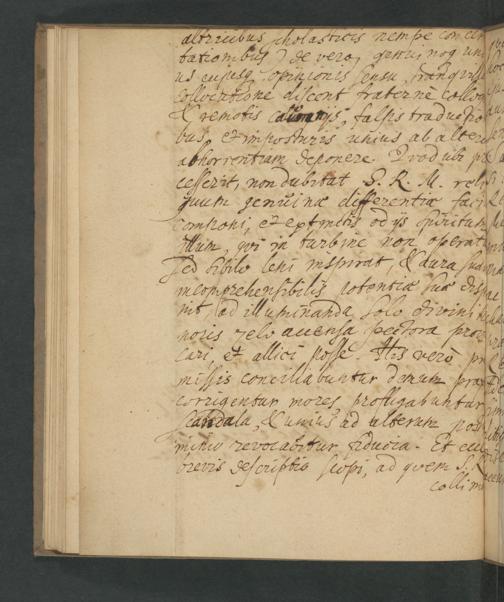 altricibus scholasticis nempe concer
tationibus) de vero, genuinoq un
us cujusq opinionis sensu, tranquilla
collocutione discent fraternè colloq
& remotis calumnijs, falsis traductio
bus, et imposturis unius ab altero
abhorrentiam deponere. Quod ubi
cesserit, non dubitat S. R. M. reli
quum genuinæ differentiæ faci
componi, et exemtis odijs spiritum
illum, qui in turbine non operat
sed sibilo leni inspirat, & aura suæ
incomprehensibilis potentiæ suæ dis
nit, ad illuminanda solo divini
noris zelo accensa pectora pro
cari, et allici posse. His verò pr
missis conciliabuntur demum
corrigentur mores, profligabuntur
scandala, & unius ad alterum pos
minio revocabitur fiducia. Et ecce
brevis descriptio scopi, ad quem S. R
collim